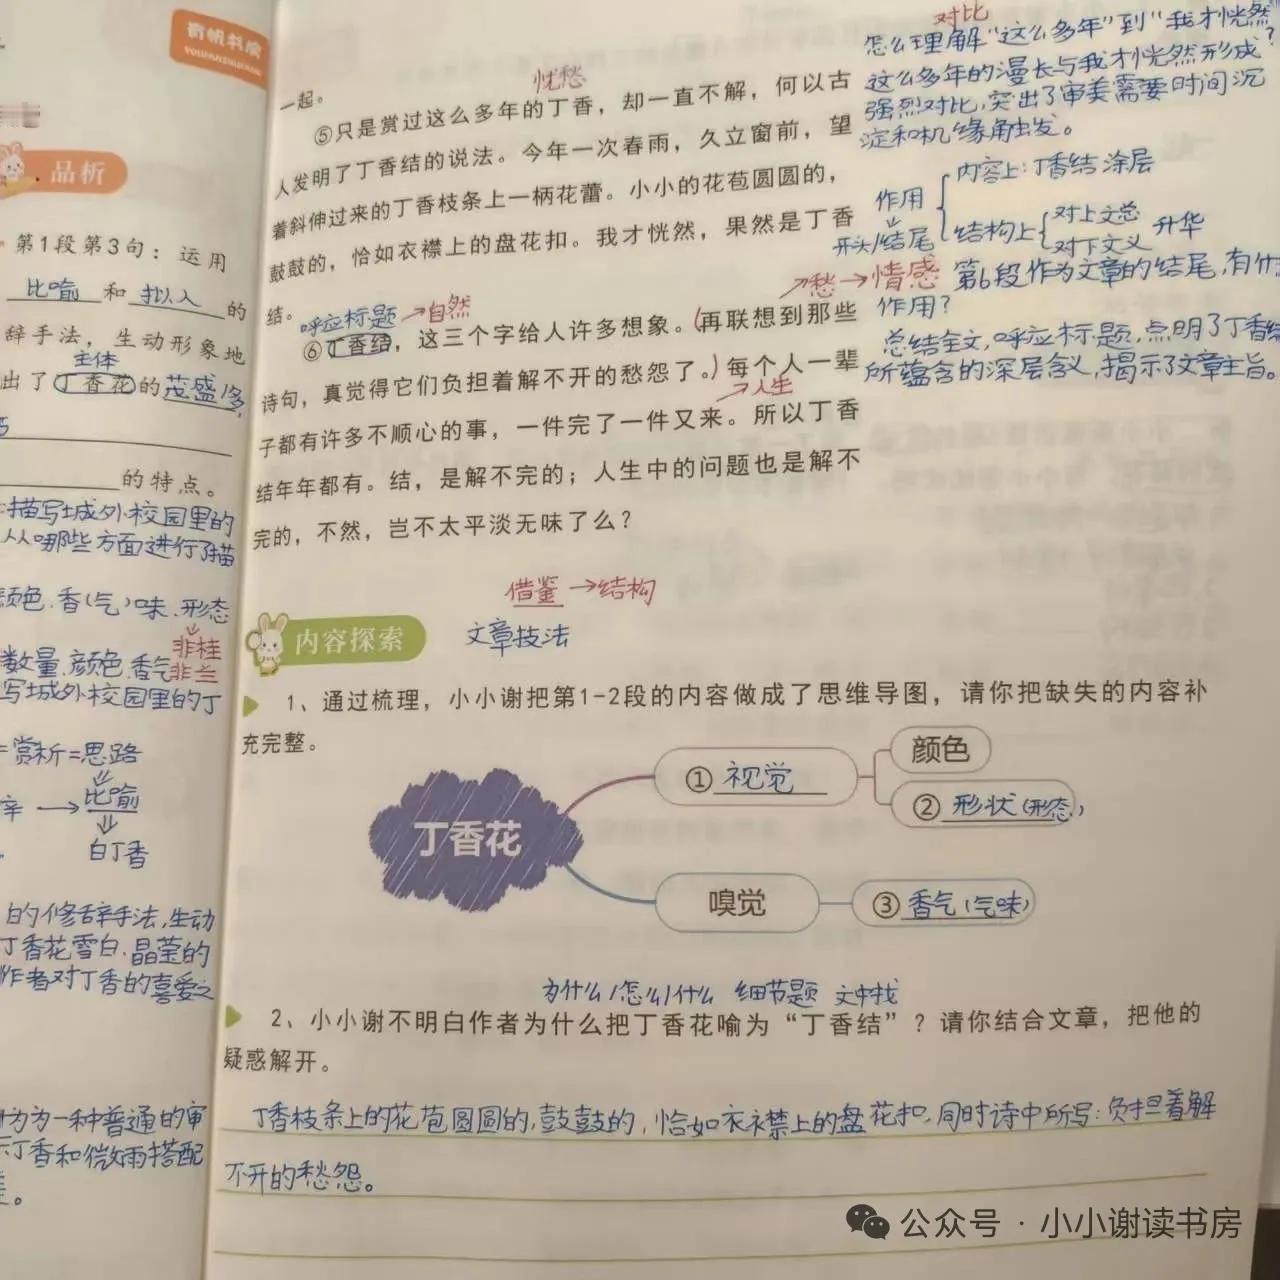 有帆书房
YOUFANSHUFANG
品析
第1段第3句：运用
比喻 和 拟人 的
辞手法，生动形象地
主体
出了丁香花的茂盛/多
的特点。
描写城外校园里的
从哪些方面进行了描
颜色、香(气)味、形态
数量、颜色、香气
非桂
非兰
写城外校园里的丁
=赏析=思路
辛 → 比喻
白丁香
的修辞手法,生动
丁香花雪白、晶莹的
作者对丁香的喜爱之
为一种普通的审
丁香和微雨搭配
一起。
忧愁
⑤只是赏过这么多年的丁香，却一直不解，何以古
人发明了丁香结的说法。今年一次春雨，久立窗前，望
着斜伸过来的丁香枝条上一柄花蕾。小小的花苞圆圆的，
鼓鼓的，恰如衣襟上的盘花扣。我才恍然，果然是丁香
结。
呼应标题→自然
愁→情感
⑥丁香结，这三个字给人许多想象。(再联想到那些
诗句，真觉得它们负担着解不开的愁怨了。)每个人一辈
→人生
子都有许多不顺心的事，一件完了一件又来。所以丁香
结年年都有。结，是解不完的；人生中的问题也是解不
完的，不然，岂不太平淡无味了么？
对比
怎么理解“这么多年”到“我才恍然”?
这么多年的漫长与我才恍然形成
强烈对比,突出了审美需要时间沉
淀和机缘触发。
作用
开头/结尾
内容上:丁香结 涂层
结构上
对上文总
对下文义
升华
第6段作为文章的结尾,有什
作用?
总结全文,呼应标题,点明了丁香结
所蕴含的深层含义,揭示了文章主旨。
借鉴→结构
内容探索
文章技法
1、通过梳理，小小谢把第1-2段的内容做成了思维导图，请你把缺失的内容补
充完整。
丁香花
① 视觉
颜色
② 形状(形态)
嗅觉
③ 香气(气味)
为什么/怎么/什么 细节题 文中找
2、小小谢不明白作者为什么把丁香花喻为“丁香结”？请你结合文章，把他的
疑惑解开。
丁香枝条上的花苞圆圆的,鼓鼓的,恰如衣襟上的盘花扣,同时诗中所写:负担着解
不开的愁怨。
公众号·小小谢读书房